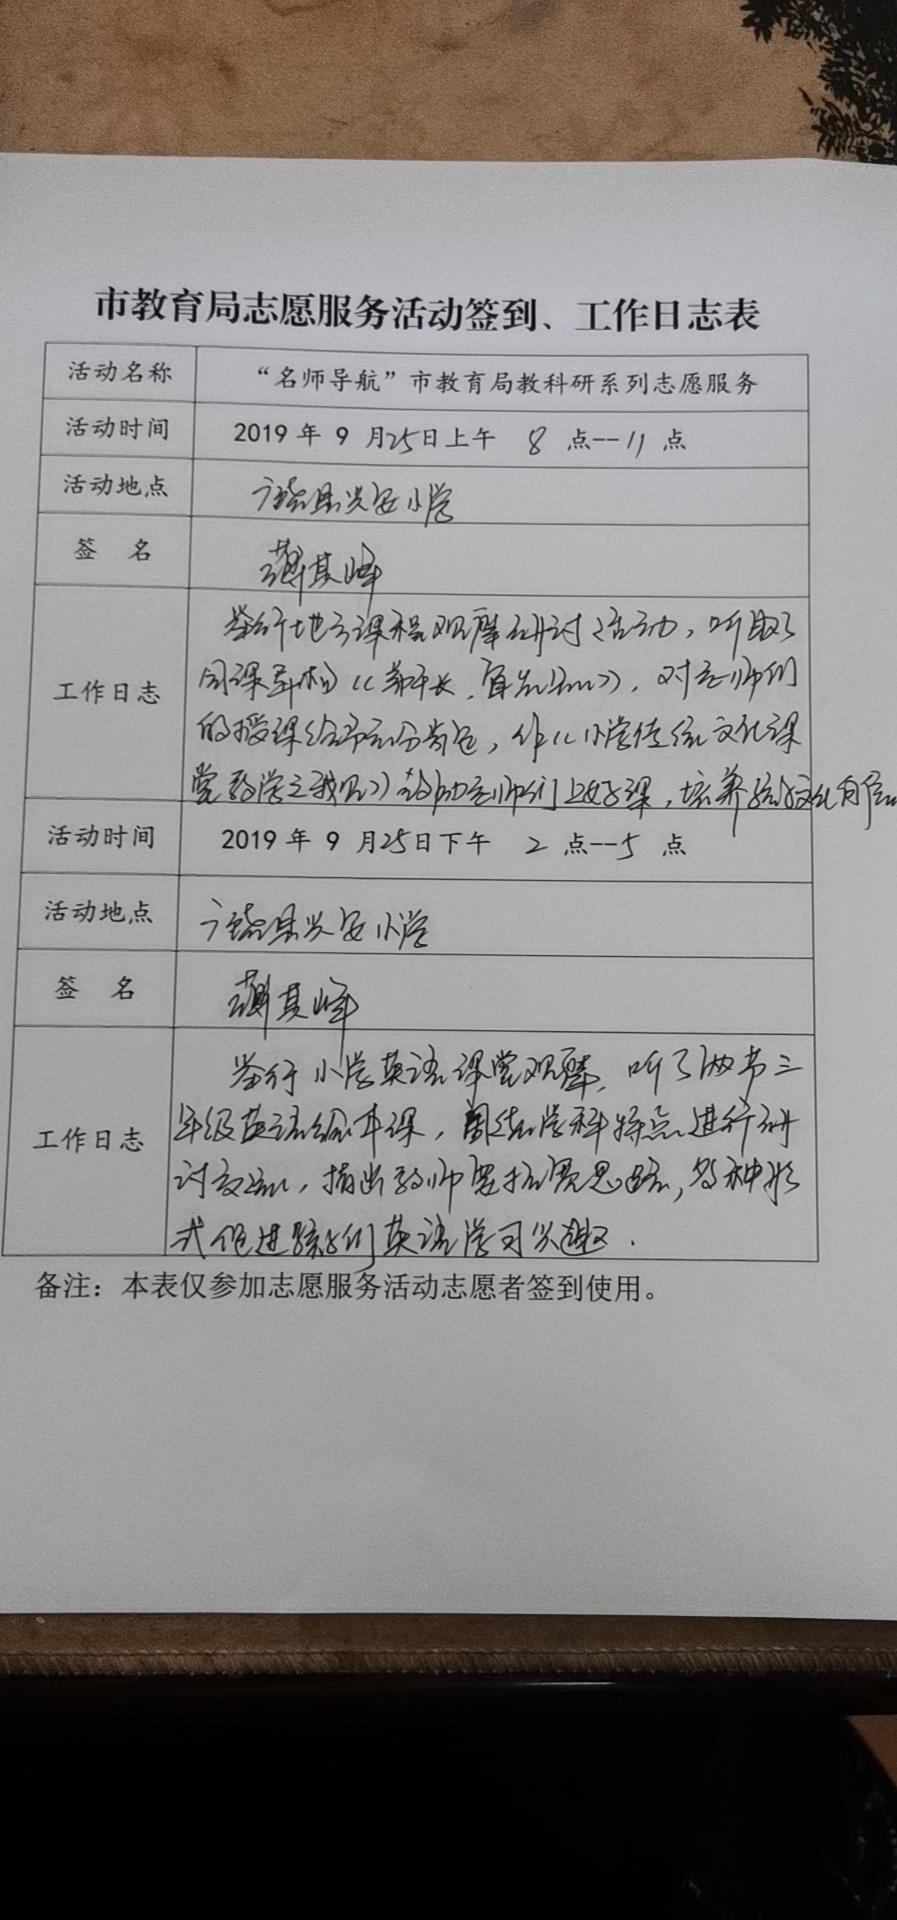 市教育局志愿服务活动签到、工作日志表
活动名称 “名师导航”市教育局教科研系列志愿服务
活动时间 2019 年 9 月25日上午 8 点--11 点
活动地点 广饶县兴安小学
签 名 其峰
举行地方课程观摩研讨活动，听取了
同课异构《》，对老师们
工作日志
的授课给予充分肯定，作《小学传统文化课
堂教学之我见》帮助老师们上好课，培养孩子文化自信
活动时间 2019 年 9 月25日下午 2 点--5 点
活动地点 广饶县兴安小学
签 名 其峰
举行小学英语课堂观摩，听了两节三
年级英语绘本课，学科特点进行研
工作日志
讨交流，指出教师要拓宽思路，多种形
式促进孩子们英语学习兴趣.
备注：本表仅参加志愿服务活动志愿者签到使用。